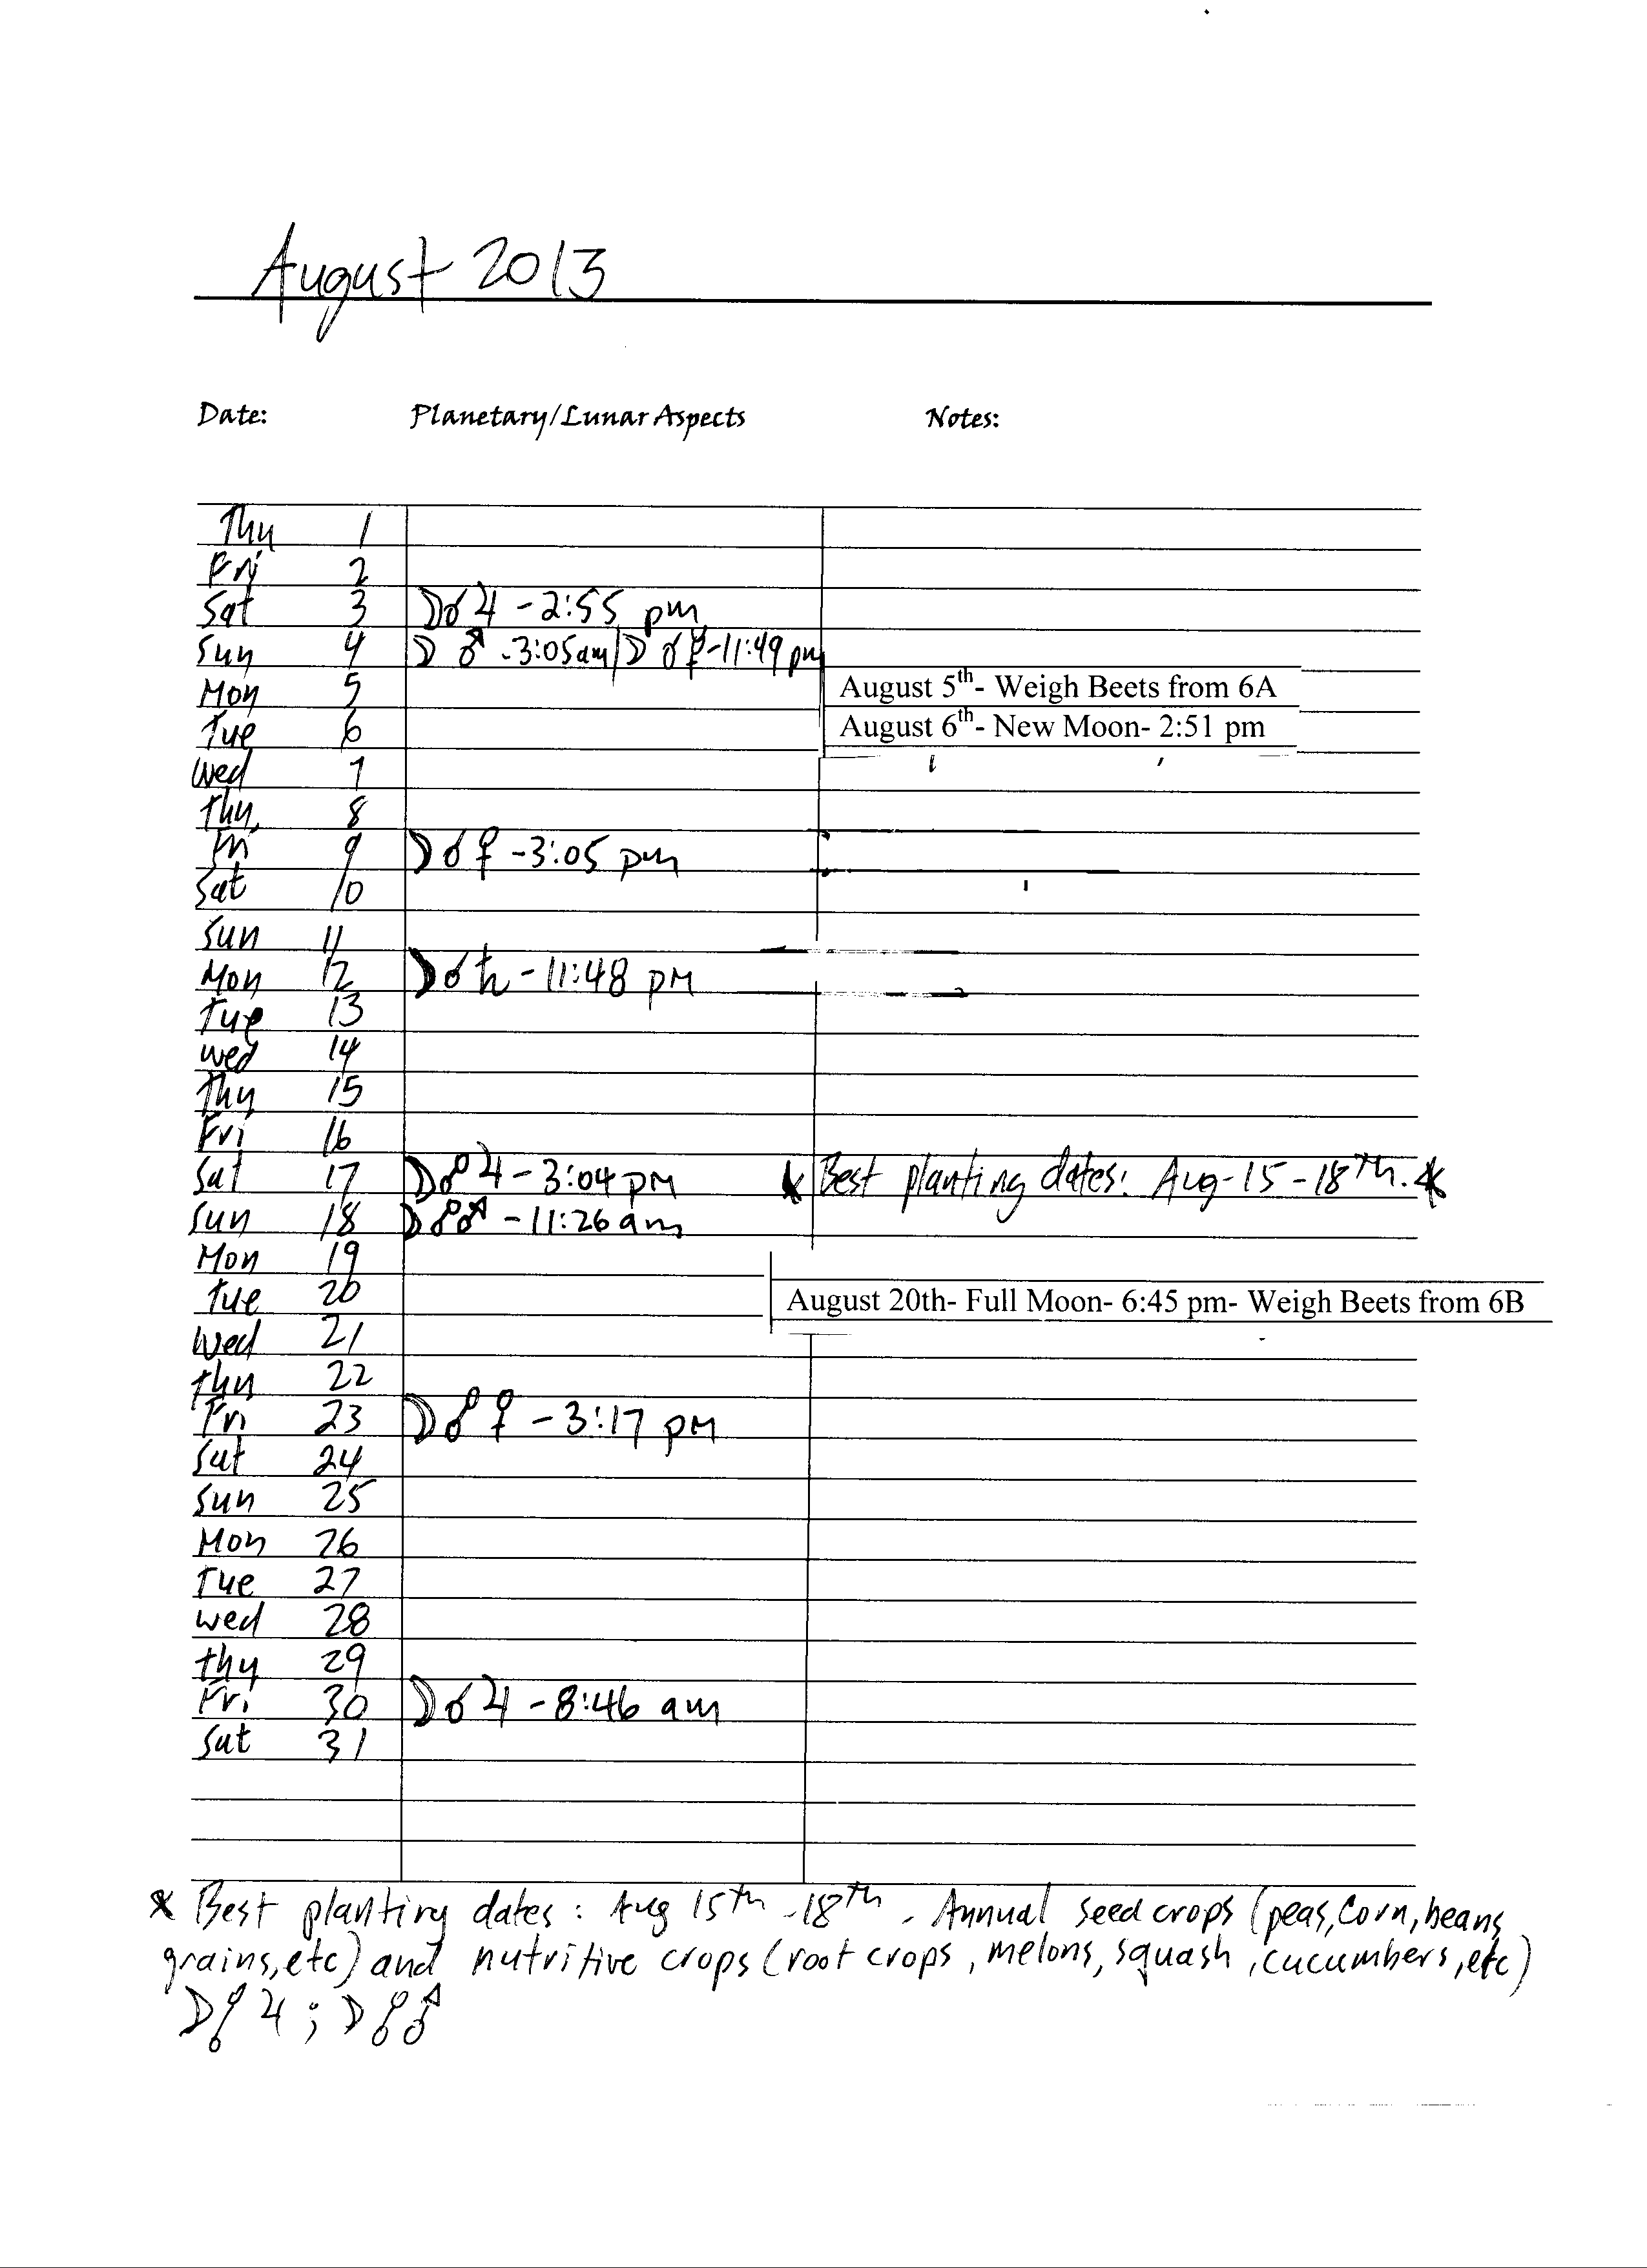 August 2013
Date: Planetary/Lunar Aspects Notes:
Thu 1
Fri 2
Sat 3 ☽☌♃ - 2:55 pm
Sun 4 ☽ ♂ - 3:05 am | ☽ ☌ ☿ - 11:49 pm
Mon 5 August 5th- Weigh Beets from 6A
Tue 6 August 6th- New Moon- 2:51 pm
Wed 7
Thu 8
Fri 9 ☽☌♀ - 3:05 pm
Sat 10
Sun 11
Mon 12 ☽☌♄ - 11:48 pm
Tue 13
Wed 14
Thu 15
Fri 16
Sat 17 ☽☍♃ - 3:04 pm * Best planting dates: Aug-15-18th. *
Sun 18 ☽☍♂ - 11:26 am
Mon 19
Tue 20 August 20th- Full Moon- 6:45 pm- Weigh Beets from 6B
Wed 21
Thu 22
Fri 23 ☽☍♀ - 3:17 pm
Sat 24
Sun 25
Mon 26
Tue 27
Wed 28
Thu 29
Fri 30 ☽☌♃ - 8:46 am
Sat 31
* Best planting dates: Aug 15th - 18th - Annual seed crops (peas, Corn, beans,
grains, etc) and nutritive crops (root crops, melons, squash, cucumbers, etc)
☽☍♃ ; ☽☍♂